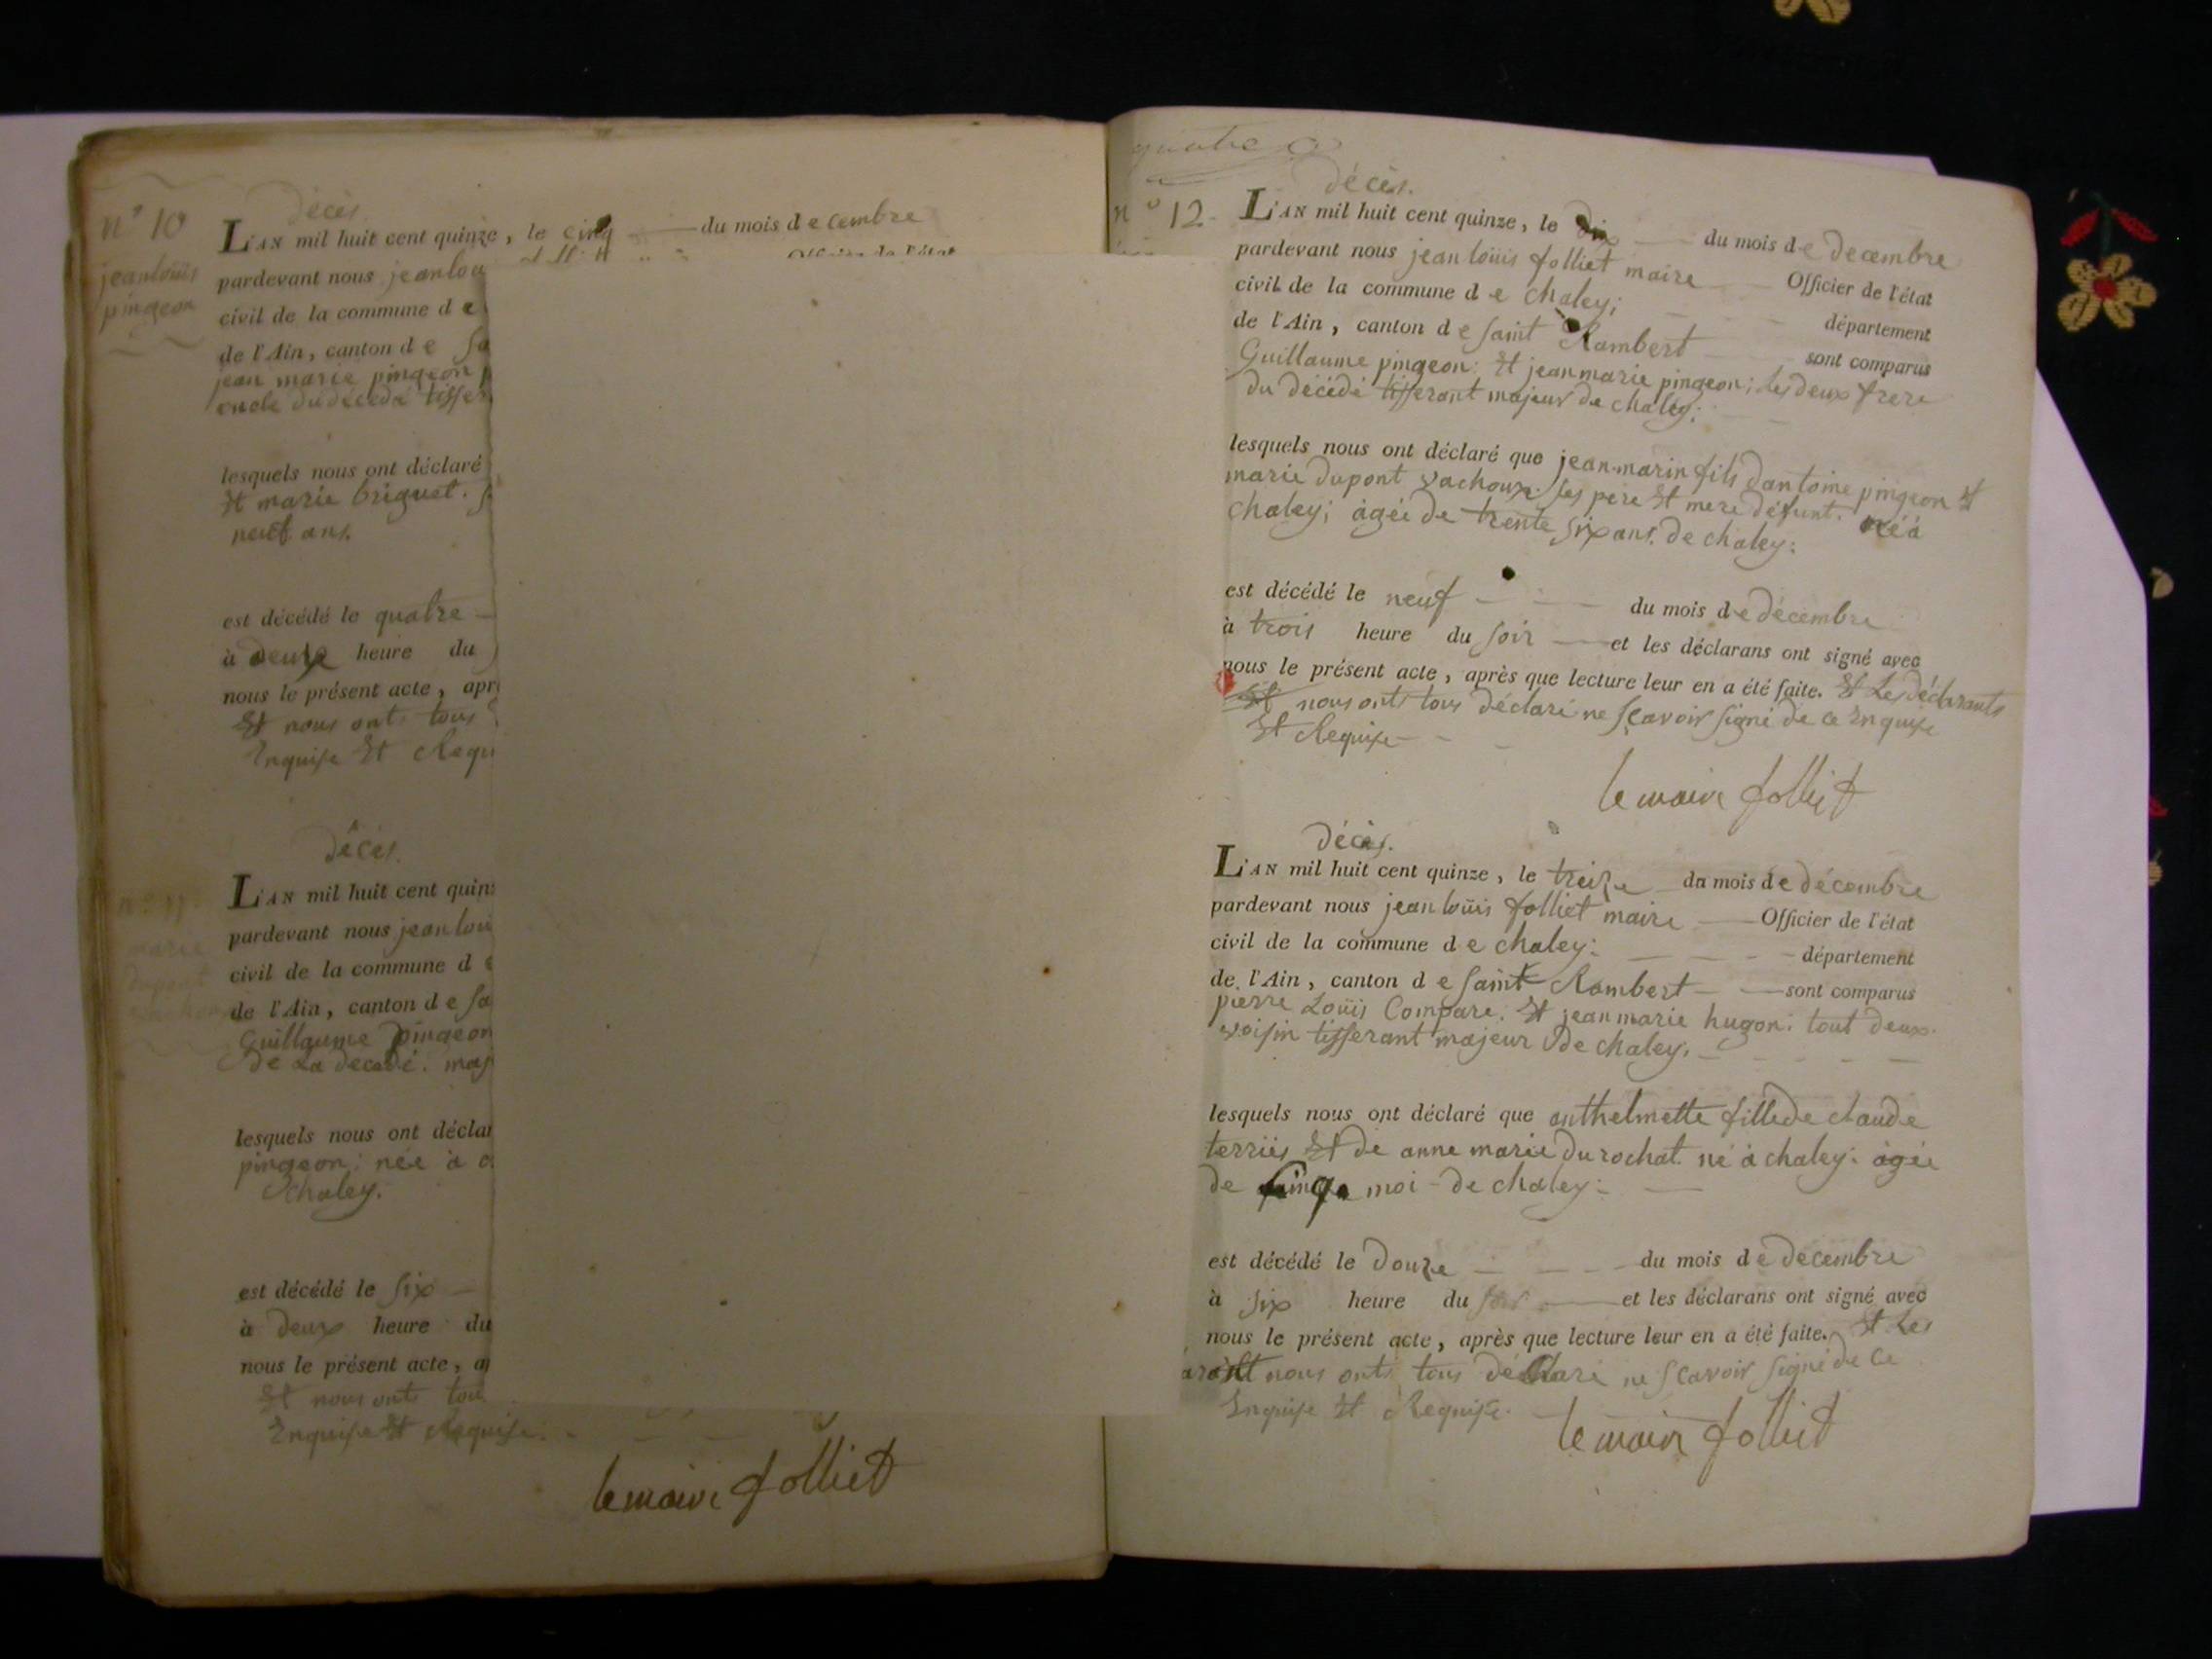 n° 10
jean louis
pingeon
décès
L'AN mil huit cent quinze, le cinq du mois decembre
pardevant nous jean lou
Officier de l'état
civil de la commune de
de l'Ain, canton de sa
jean marie pingeon
oncle du décédé tisser
lesquels nous ont déclaré
Et marie briguet.
neuf ans.
est décédé le quatre
à deux heure du
nous le présent acte, apr
Et nous onts tous
Enquise Et Requi
décès.
n° 11
marie
dupont
L'AN mil huit cent quin
pardevant nous jean loui
civil de la commune de
de l'Ain, canton de sa
Guillaume pingeon
de La décédé. maj
lesquels nous ont déclar
pingeon; née à c
Chaley.
est décédé le six
à deux heure du
nous le présent acte, a
Et nous onts tou
Enquise Et Requise.
le maire folliet
quatre
décès.
n° 12
L'AN mil huit cent quinze, le dix du mois de decembre
pardevant nous jean loüis folliet maire Officier de l'état
civil de la commune de chaley; département
de l'Ain, canton de saint Rambert sont comparus
Guillaume pingeon; Et jean marie pingeon; Les deux frere
du décédé tisserant majeur de chaley;
lesquels nous ont déclaré que jean marin fils dantoine pingeon Et
marie dupont vachoux. ses pere Et mere défunt. né à
chaley; agée de trente six ans. de chaley:
est décédé le neuf du mois de décembre
à trois heure du soir et les déclarans ont signé avec
nous le présent acte, après que lecture leur en a été faite. Et Les déclarants
Et nous onts tous déclaré ne sçavoir signé de ce Enquise
Et Requise
le maire folliet
Décès.
L'AN mil huit cent quinze, le treize du mois de décembre
pardevant nous jean loüis folliet maire Officier de l'état
civil de la commune de chaley: département
de l'Ain, canton de saint Rambert sont comparus
pierre Loüis Compare; Et jean marie hugon; tout deux
voisin tisserant majeur de chaley.
lesquels nous ont déclaré que anthelmette fille de claude
terriés Et de anne marie durochat. né à chaley: agée
de cinq moi de chaley:
est décédé le Douze du mois de decembre
à six heure du soir et les déclarans ont signé avec
nous le présent acte, après que lecture leur en a été faite. Et Les
nous onts tous déclaré ne scavoir signé de ce
Enquise Et Requise.
le maire folliet